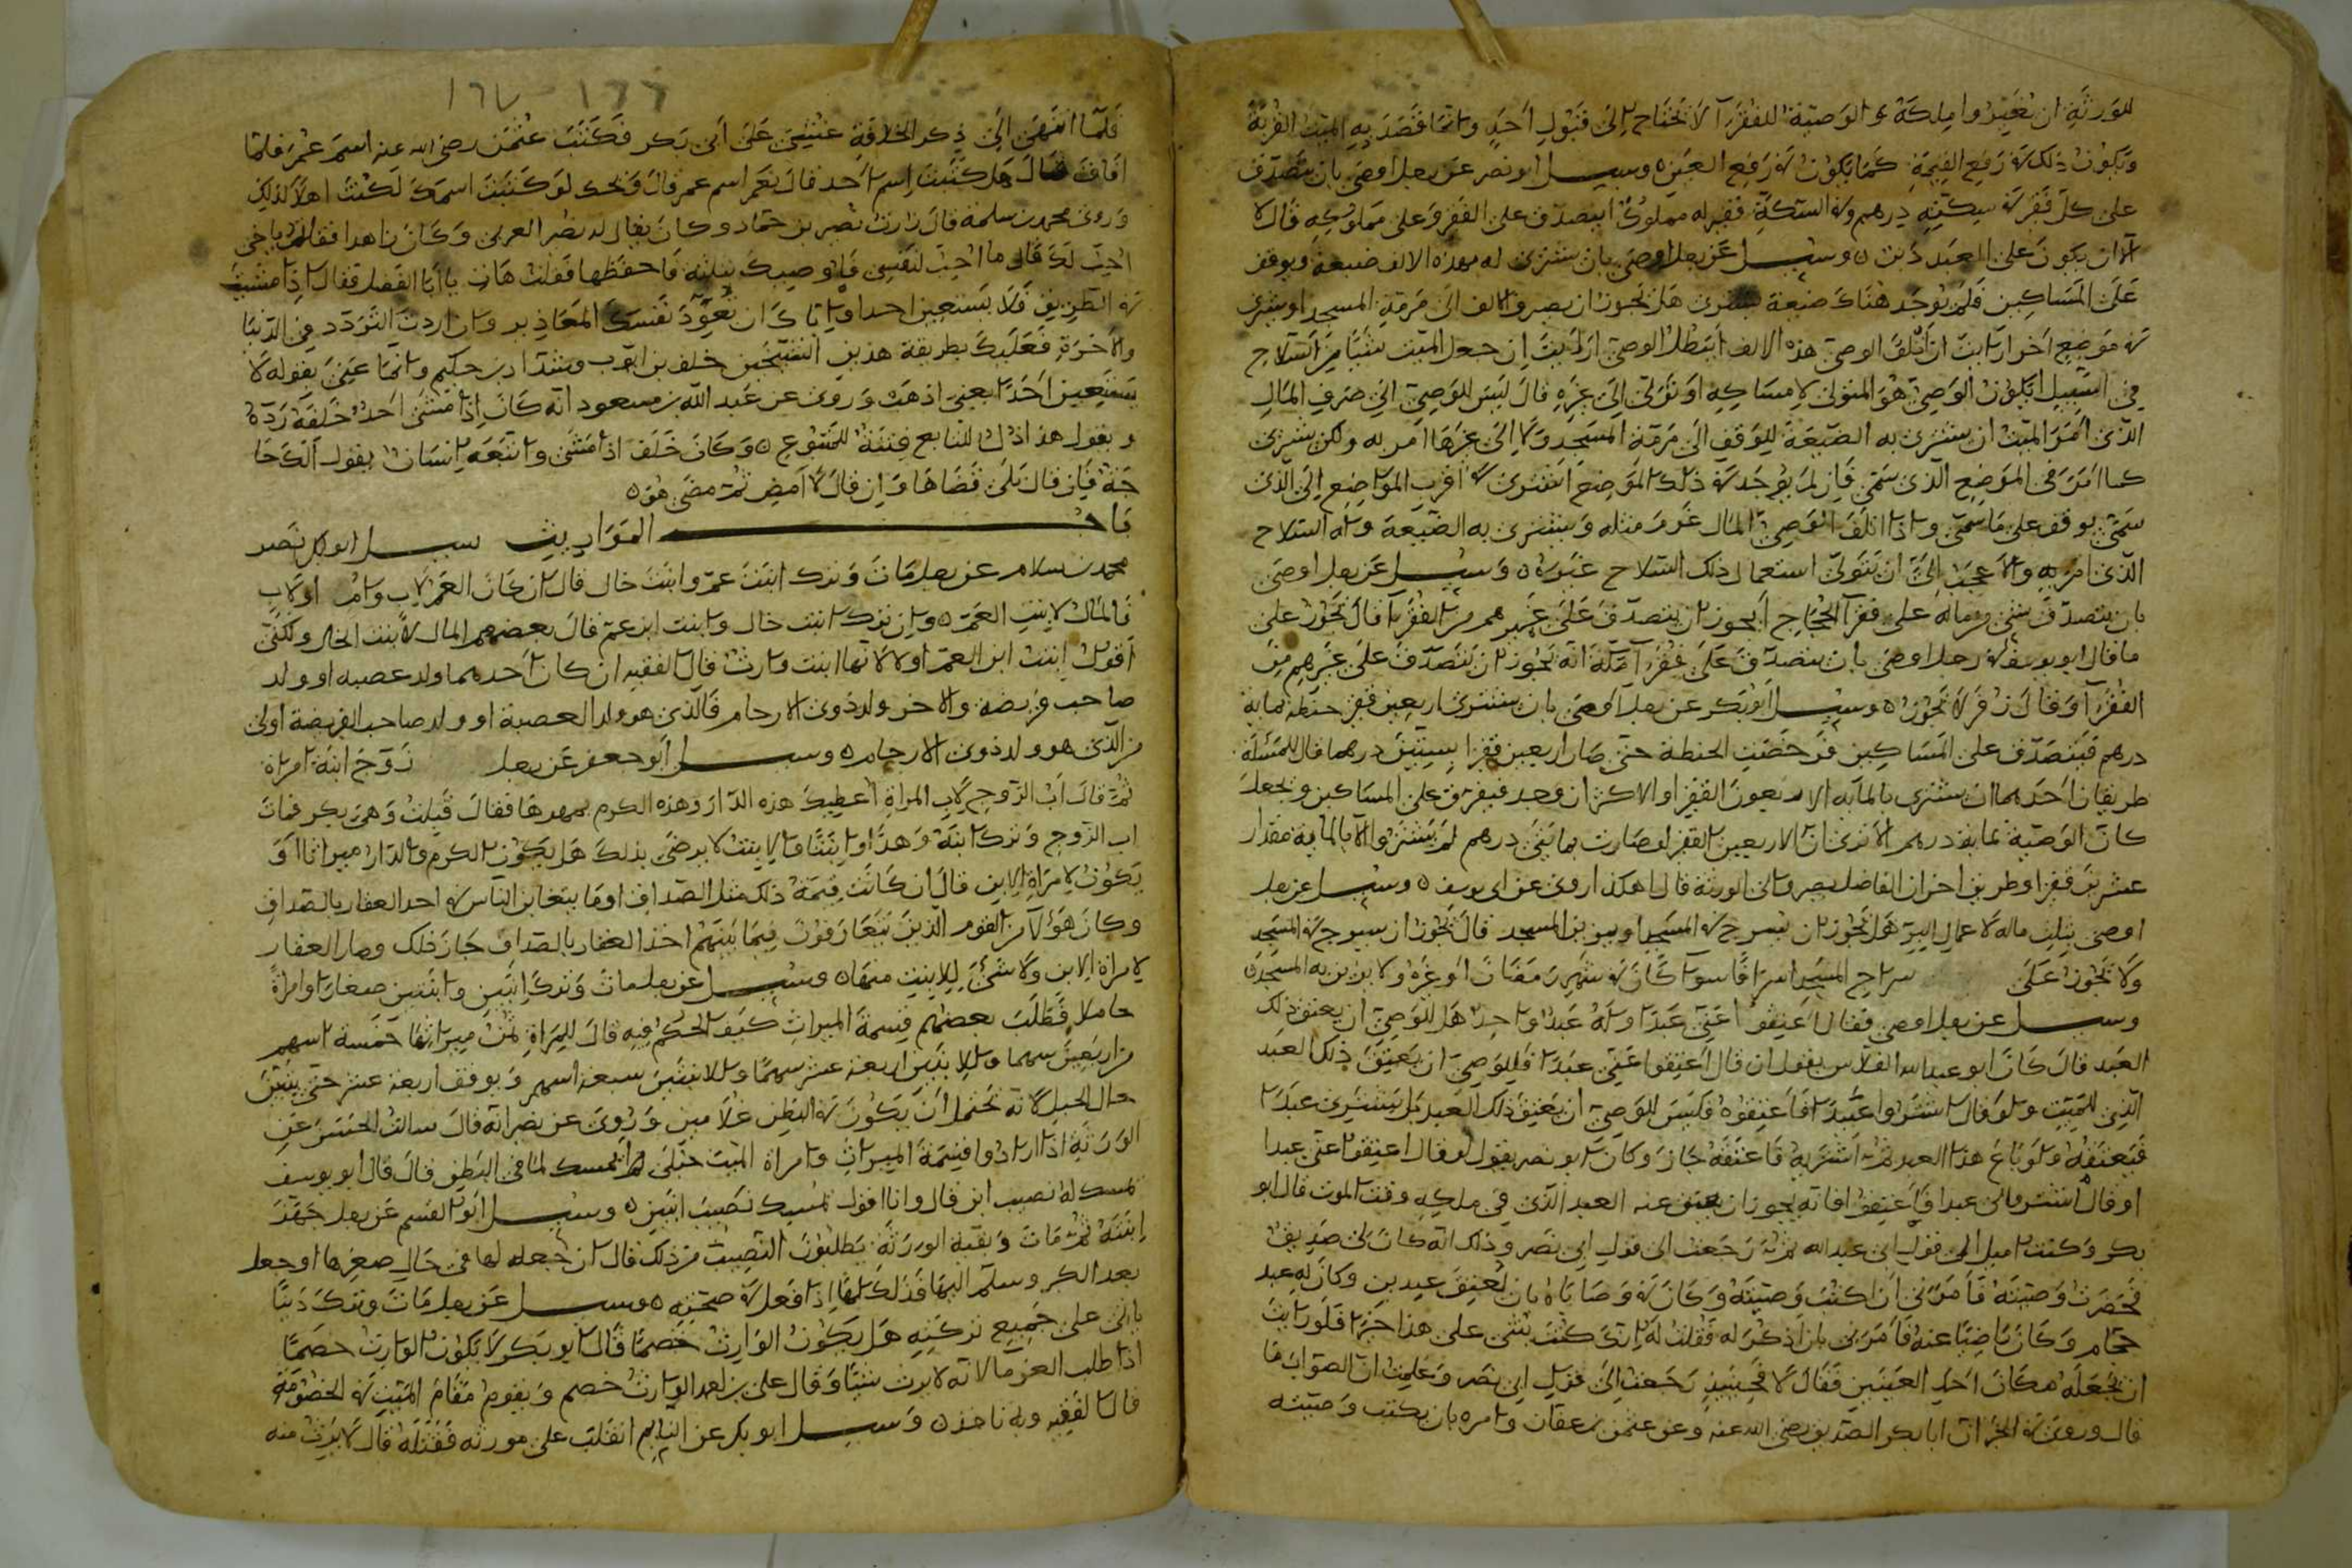 للورثة ان يغيروا ملكه والوصية للفقرآ لا تحتاج الى قبول احد وانما قصد به الميت القربة
ويكون ذلك في رفع القيمة كما يكون في رفع العين ٥ وسيل ابو نصر عن رجل اوصى بان يتصدق
على كل فقير في سكته درهم وفي السكة فقير له مملوك ايتصدق على الفقير وعلى مملوكه قال لا
الا ان يكون على العبد دين ٥ وسيل عن رجل اوصى بان يشترى له بهذه الالف ضيعة ويوقف
على المساكين فلم يوجد هناك ضيعة يشترى هل يجوز ان يصرف الالف الى مرمة المسجد او يشترى
في موضع اخر ارايت ان اتلف الوصي هذه الالف ايبطل الوصي ارايت ان جعل الميت شيئا من السلاح
في السبيل ايكون الوصي هو المتولى لامساكه او تولى الى غيره قال ليس للوصي الى صرف المال
الذى امر الميت ان يشترى به الضيعة للوقف الى مرمة المسجد ولا الى غيرها امر به ولكن يشترى
كما امر في الموضع الذى سمى فان لم يوجد في ذلك الموضع اشترى في اقرب المواضع الى الذى
سمى يوقف على ما سمى واذا اتلف الوصي المال غرم مثله ويشترى به الضيعة واما السلاح
الذى امر به والاعجب الى ان يتولى استعمال ذلك السلاح غيره ٥ وسيل عن رجل اوصى
بان يتصدق بشي من ماله على فقرآ الحجاج ايجوز ان يتصدق على غيرهم من الفقرآ قال يجوز على
ما قال ابو يوسف في رجل اوصى بان يتصدق على فقرآ مكة انه يجوز ان يتصدق على غيرهم من
الفقرآ وقال زفر لا يجوز ٥ وسيل ابو بكر عن رجل اوصى بان يشترى اربعين قفيز حنطة بماية
درهم فيتصدق على المساكين فرخصت الحنطة حتى صار اربعين قفيزا بستين درهما قال للمسئلة
طريقان احدهما ان يشترى بالمآية الاربعون القفيز او الاكثر ان وجد فيفرق على المساكين ويجعل
كان الوصية بماية درهم الا ترى ان الاربعين القفيز لو صارت بمايتى درهم لم يشتروا الا بالماية مقدار
عشرين قفيزا وطريق اخر ان الفاضل يصرف الى الورثة قال هكذا روى عن ابى يوسف ٥ وسيل عن رجل
اوصى بثلث ماله لاعمال البر هل يجوز ان يسرج في المسجد او يزين المسجد قال يجوز ان يسرج في المسجد
ولا يجوز على سراج المسجد اسرافا سوا كان في شهر رمضان او غيره ولا يزين به المسجد ٥
وسيل عن رجل اوصى فقال اعتقوا عنى عبدا وله عبد واحد هل للوصي ان يعتق ذلك
العبد قال كان ابو عبد الله القلاس يقول ان قال اعتقوا عنى عبدا فللوصي ان يعتق ذلك العبد
الذي للميت ولو قال اشتروا عبدا فاعتقوه فليس للوصي ان يعتق ذلك العبد بل يشترى عبدا
فيعتقه ولو باع هذا العبد ثم اشتريه فاعتقه جاز وكان ابو نصر يقول لو قال اعتقوا عنى عبدا
او قال اشتروا لى عبدا فاعتقوا فانه يجوز ان يعتق عنه العبد الذى في ملكه وقت الموت قال ابو
بكر وكنت اميل الى قول ابى عبد الله ثم رجعت الى قول ابى نصر وذلك انه كان لى صديق
فحضرت وصيته فامرنى ان اكتب وصيته وكان في وصاياه بان يعتق عبدين وكان له عبد
حجام وكان راضيا عنه فامرنى بان اذكر له فقلت له انك كنت تثنى على هذا خيرا فلو رايت
ان تجعله مكان احد العبدين فقال لا فحينيذ رجعت الى قول ابى نصر وعلمت ان الصواب ما
قال وروى في الخبر ان ابا بكر الصديق رضى الله عنه وعن عثمن بن عفان وامره بان يكتب وصيته
١٦٦ - ١٦٧
فلما انتهى الى ذكر الخلافة غشي على ابى بكر فكتب عثمن رضى الله عنه اسم عمر فلما
افاق قال هل كتبت اسم احد قال نعم اسم عمر قال ويحك لو كتبت اسمك لكنت اهلا لذلك
وروى محمد بن سلمة قال زارنى نصير بن حماد وكان يقال له نصر العربى وكان زاهدا فقال يا اخى
احب لك قال ما احب لنفسى فاوصيك بثلثه فاحفظها فقلت هات يا ابا الفضل فقال اذا مشيت
في الطريق فلا يستعين احدا واياك ان تعود نفسك المعاذير وان اردت التردد في الدنيا
والاخرة فعليك بطريقة هذين الشيخين خلف بن ايوب وشداد بن حكيم وانما عنى بقوله لا
يستعين احدا يعنى اذهب وروى عن عبد الله بن مسعود انه كان اذا مشى احد خلفه رده
ويقول هذا ذل للتابع فتنة للمتبوع ٥ وكان خلف اذا مشى واتبعه انسان يقول الك حا
جة فان قال بلى قضاها وان قال لا امض ثم مضى هو ٥
باب المواريث سيل ابو نصر
محمد بن سلام عن رجل مات وترك ابنت عم وابنت خال قال ان كان العم لاب وام او لاب
فالمال لابنت العم ٥ وان ترك ابنت خال وابنت ابن عم قال بعضهم المال لابنت الخال ولكنى
اقول ابنت ابن العم اولا لانها ابنت وارث قال الفقيه ان كان احدهما ولد عصبه او ولد
صاحب فريضة والاخر ولد ذوى الارحام فالذى هو ولد العصبة او ولد صاحب الفريضة اولى
من الذى هو ولد ذوى الارحام ٥ وسيل ابو جعفر عن رجل زوج ابنه امراة
ثم قال اب الزوج لاب المراة اعطيك هذه الدار وهذه الكرم بمهرها فقال قبلت وهى بكر فمات
اب الزوج وترك ابنه وهذا وابنتا والابنت لا يرضى بذلك هل يكون الكرم والدار ميراثا او
يكون لامراة الابن قال ان كانت قيمة ذلك مثل الصداق او ما يتغابن الناس في اخذ العقار بالصداق
وكان هؤلآ من القوم الذين يتعارفون فيما بينهم اخذ العقار بالصداق جاز ذلك وصار العقار
لامراة الابن ولا شئ للابنت منها ٥ وسيل عن رجل مات وترك ابنين وابنتين صغارا وامراة
حاملا فطلب بعضهم قسمة الميراث كيف الحكم فيه قال للمراة ثمن ميراثها خمسة اسهم
من اربعين سهما وللابنين اربعة عشر سهما وللابنتين سبعة اسهم ويوقف اربعة عشر حتى يتبين
حال الحبل لانه يحتمل ان يكون في البطن غلامين وروى عن نصر انه قال سالت الحسن عن
الورثة اذا ارادوا قسمة الميراث وامراة الميت حبلى كم يمسك لما في البطن قال قال ابو يوسف
يمسك له نصيب ابن قال وانا اقول يمسك نصيب ابنين ٥ وسيل ابو القسم عن رجل جهز
ابنته ثم مات وبقية الورثة يطلبون النصيب من ذلك قال ان جعله لها في حال صغرها او جعل
بعد الكبر وسلم اليها فذلك لها اذا فعل في صحته ٥ وسيل عن رجل مات وترك دينا
ياتى على جميع تركته هل يكون الوارث خصما قال ابو بكر لا يكون الوارث خصما
اذا طلب الغرما لانه لا يرث شيئا وقال على بن احمد الوارث خصم ويقوم مقام الميت في الخصومة
قال الفقيه وبه ناخذ ٥ وسيل ابو بكر عن النايم انقلب على مورثه فقتله قال لا يرث منه